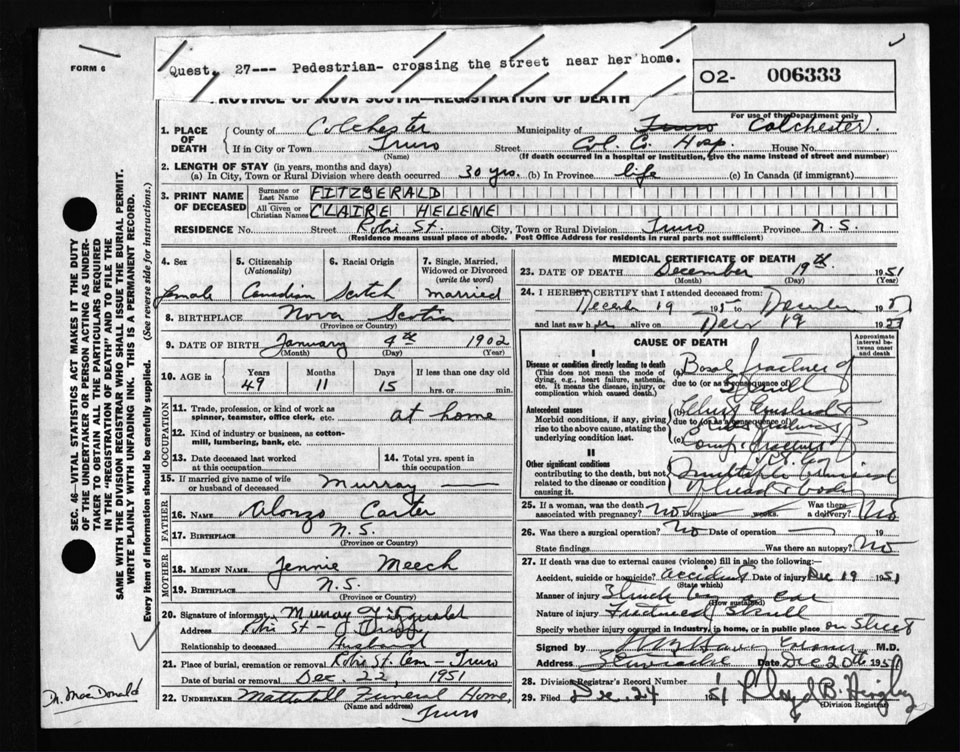 FORM 6
Quest. 27--- Pedestrian- crossing the street near her home.
02- 006333
PROVINCE OF NOVA SCOTIA—REGISTRATION OF DEATH
For use of the Department only
1. PLACE OF DEATH
County of Colchester Municipality of Truro Colchester.
If in City or Town Truro Street Col. Co. Hosp. House No.
(Name) (If death occurred in a hospital or institution, give the name instead of street and number)
2. LENGTH OF STAY (in years, months and days)
(a) In City, Town or Rural Division where death occurred 30 yrs. (b) In Province life (c) In Canada (if immigrant)
3. PRINT NAME OF DECEASED
Surname or Last Name FITZGERALD
All Given or Christian Names CLAIRE HELENE
RESIDENCE No. Street Robie St. City, Town or Rural Division Truro Province N.S.
(Residence means usual place of abode. Post Office Address for residents in rural parts not sufficient)
4. Sex 5. Citizenship (Nationality) 6. Racial Origin 7. Single, Married, Widowed or Divorced (write the word)
female Canadian Scotch married
8. BIRTHPLACE Nova Scotia
(Province or Country)
9. DATE OF BIRTH January 4th 1902
(Month) (Day) (Year)
10. AGE in Years Months Days If less than one day
49 11 15 hrs. or min.
OCCUPATION
11. Trade, profession, or kind of work as spinner, teamster, office clerk, etc. at home
12. Kind of industry or business, as cotton-mill, lumbering, bank, etc.
13. Date deceased last worked at this occupation
14. Total yrs. spent in this occupation
15. If married give name of wife or husband of deceased Murray
FATHER
16. NAME Alonzo Carter
17. BIRTHPLACE N.S.
(Province or Country)
MOTHER
18. MAIDEN NAME Jennie Meech
19. BIRTHPLACE N.S.
(Province or Country)
20. Signature of informant Murray Fitzgerald
Address Robie St - Truro
Relationship to deceased Husband
21. Place of burial, cremation or removal Robie St. Cem - Truro
Date of burial or removal Dec. 22, 1951
22. UNDERTAKER Mattatall Funeral Home,
(Name and address)
Truro
MEDICAL CERTIFICATE OF DEATH
23. DATE OF DEATH December 19th 1951
(Month) (Day) (Year)
24. I HEREBY CERTIFY that I attended deceased from:
December 19 1951 to December 19
and last saw her alive on Dec 19 1951
CAUSE OF DEATH
Approximate interval between onset and death
I
Disease or condition directly leading to death
(This does not mean the mode of dying, e.g., heart failure, asthenia, etc. It means the disease, injury, or complication which caused death.)
(a) Basal fracture of Skull
due to (or as a consequence of)
Antecedent causes
Morbid conditions, if any, giving rise to the above cause, stating the underlying condition last.
(b)
due to (or as a consequence of)
(c) Comp. fracture
II
Other significant conditions
contributing to the death, but not related to the disease or condition causing it.
multiple
head & body
25. If a woman, was the death associated with pregnancy? No Duration weeks. Was there a delivery? No
26. Was there a surgical operation? No Date of operation 19
State findings Was there an autopsy? No
27. If death was due to external causes (violence) fill in also the following:—
Accident, suicide or homicide? accident Date of injury Dec 19 1951
(State which)
Manner of injury Struck by a Car
(How sustained)
Nature of injury Fractured Skull
Specify whether injury occurred in industry, in home, or in public place on Street
Signed by M.D.
Address Stewiacke Date Dec 20th 1951
28. Division Registrar's Record Number
29. Filed Dec. 24 1951 Lloyd B.
(Division Registrar)
SEC. 46—VITAL STATISTICS ACT MAKES IT THE DUTY OF THE UNDERTAKER OR PERSON ACTING AS UNDERTAKER TO OBTAIN ALL THE PARTICULARS REQUIRED IN THE "REGISTRATION OF DEATH" AND TO FILE THE SAME WITH THE DIVISION REGISTRAR WHO SHALL ISSUE THE BURIAL PERMIT.
WRITE PLAINLY WITH UNFADING INK. THIS IS A PERMANENT RECORD.
Every item of information should be carefully supplied. (See reverse side for instructions.)
Dr. MacDonald